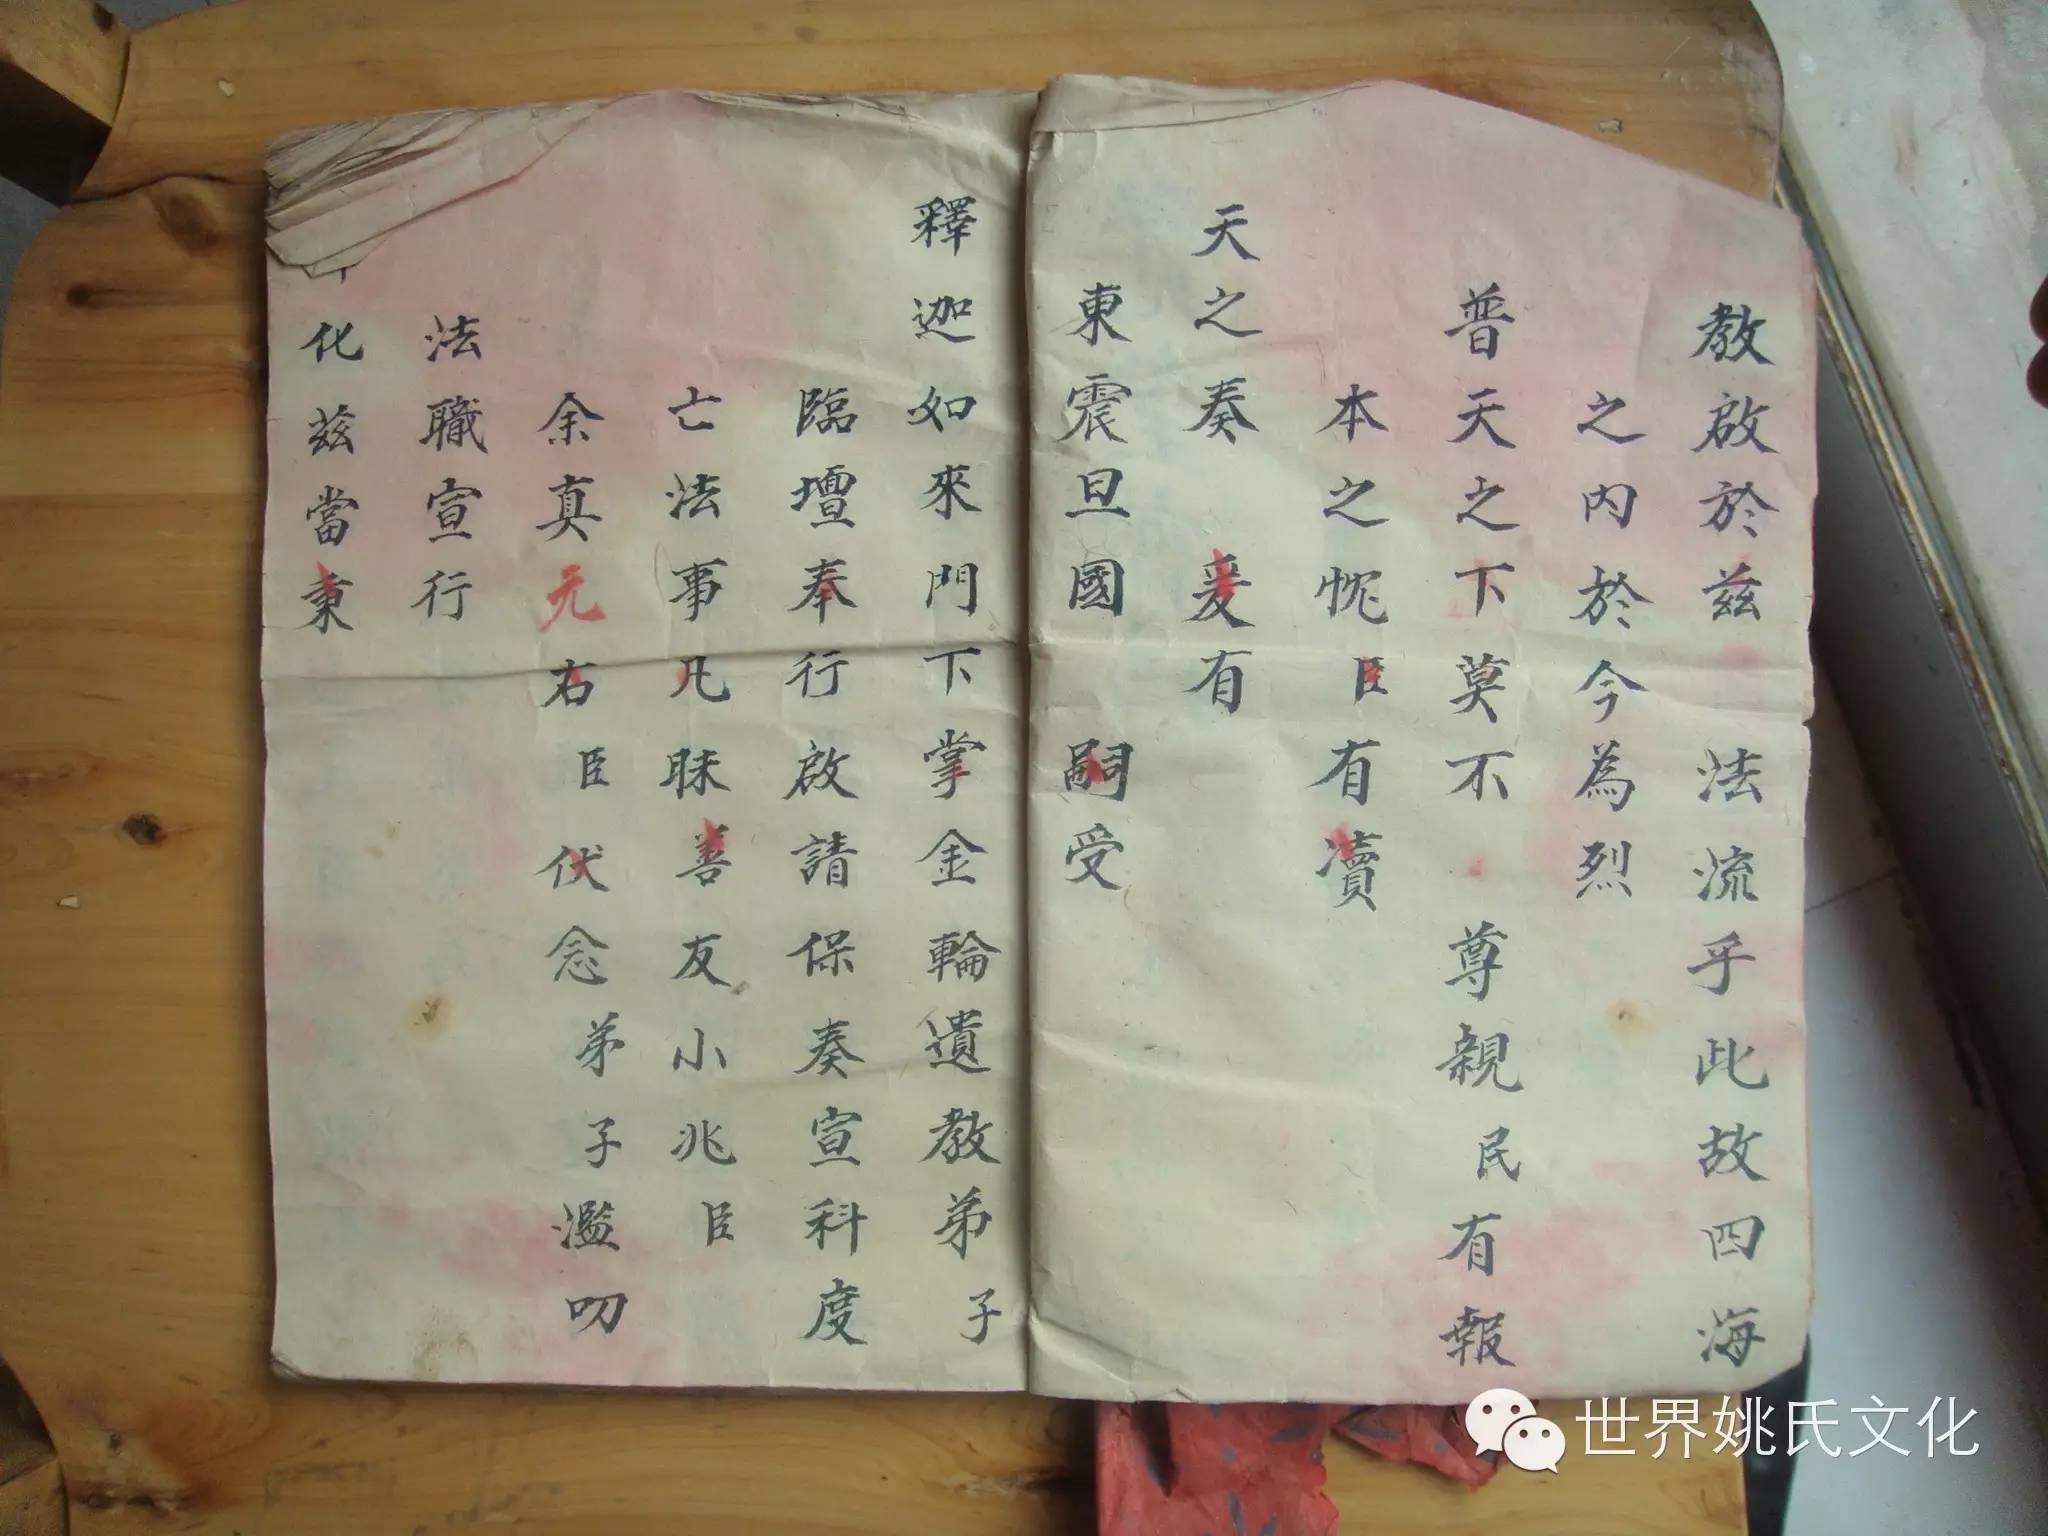 教啟於茲　法流乎此故四海
之內於今為烈
普天之下莫不　尊親民有報
本之忱臣有瀆
天之奏　爰有
東震旦國　嗣受
釋迦如來門下掌金輪遺教弟子
臨壇奉行啟請保奏宣科度
亡法事凡昧善友小兆臣
余真元右臣伏念弟子濫叨
法職宣行
化茲當秉
世界姚氏文化